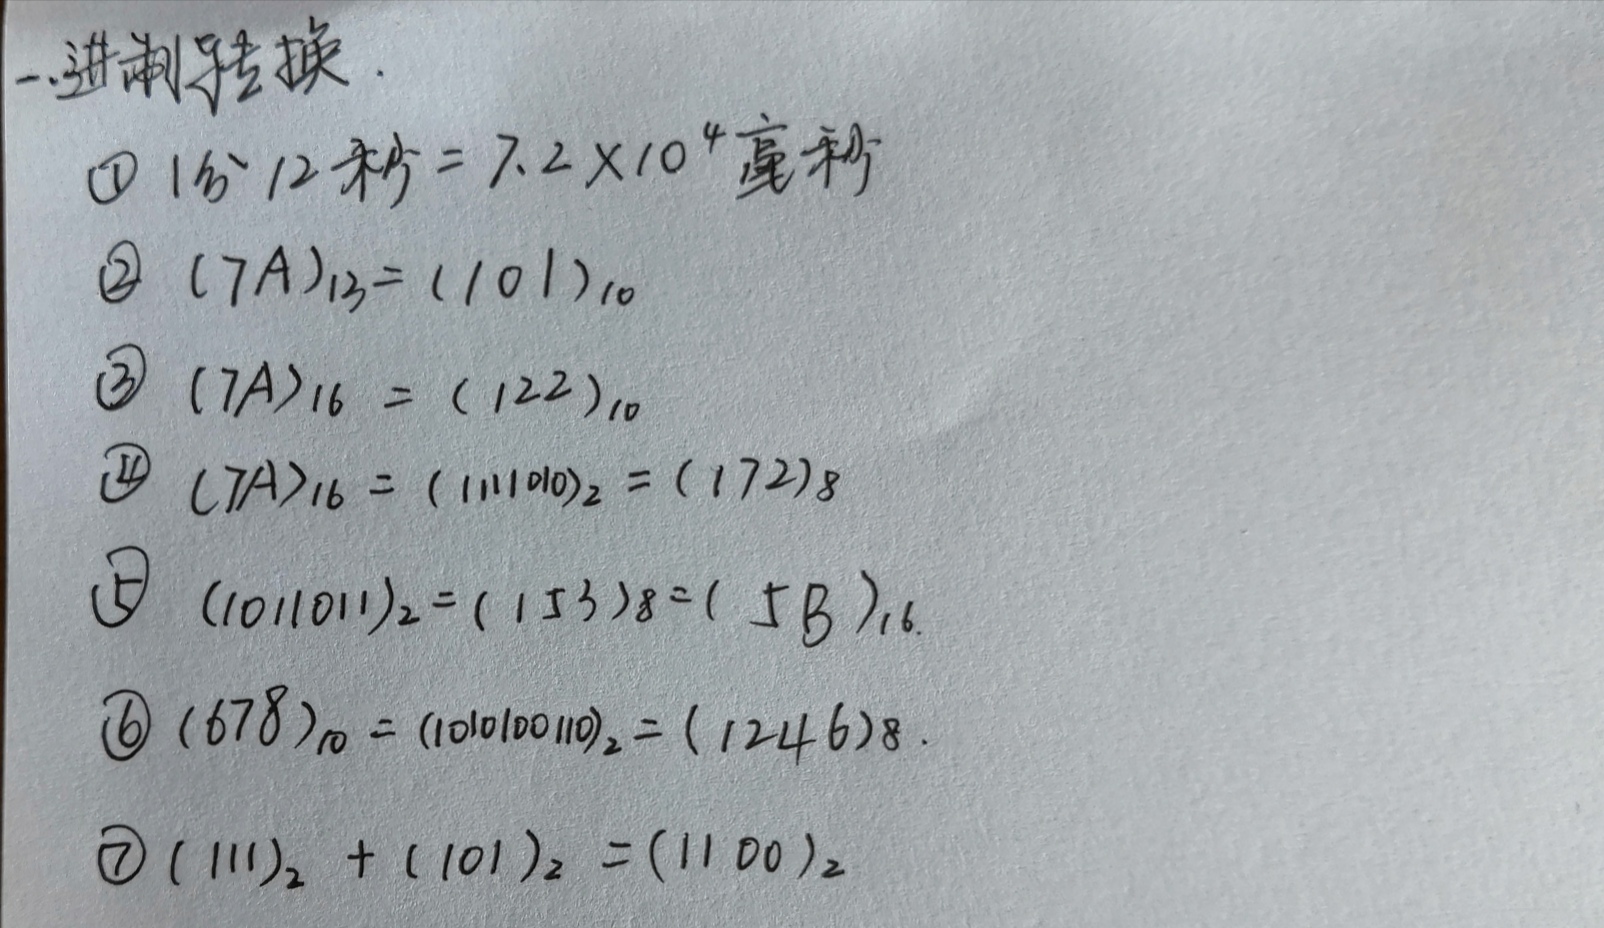 一.进制转换.
① 1分12秒=7.2×10⁴毫秒
② (7A)₁₃=(101)₁₀
③ (7A)₁₆ = (122)₁₀
④ (7A)₁₆ = (1111010)₂ = (172)₈
⑤ (1011011)₂=(153)₈=( 5B )₁₆.
⑥ (678)₁₀ = (1010100110)₂ = (1246)₈.
⑦ (111)₂ + (101)₂ =(1100)₂